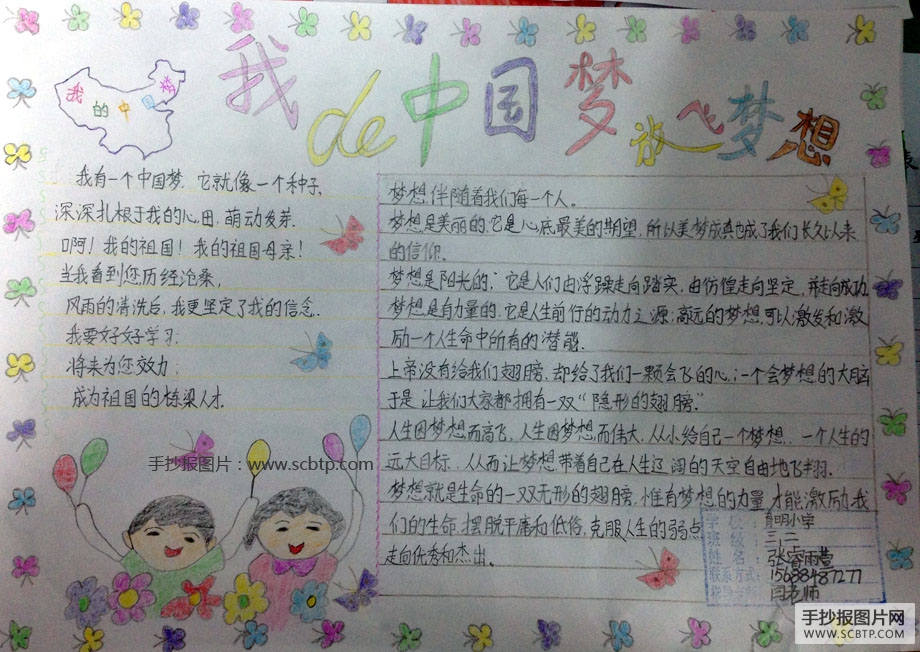 我de中国梦
放飞梦想
我的中国梦
我有一个中国梦,它就像一个种子,
深深扎根于我的心田,萌动发芽.
啊!我的祖国!我的祖国母亲!
当我看到您历经沧桑,
风雨的清洗后,我更坚定了我的信念.
我要好好学习;
将来为您效力;
成为祖国的栋梁人才.
梦想,伴随着我们每一个人。
梦想是美丽的,它是心底最美的期望,所以美梦成真也成了我们长久以来
的信仰.
梦想是阳光的,它是人们由浮躁走向踏实,由彷徨走向坚定,并走向成功.
梦想是有力量的,它是人生前行的动力之源;高远的梦想,可以激发和激
励一个人生命中所有的潜能.
上帝没有给我们翅膀,却给了我们一颗会飞的心;一个会梦想的大脑
于是,让我们大家都拥有一双“隐形的翅膀”
人生因梦想而高飞,人生因梦想而伟大,从小给自己一个梦想,一个人生的
远大目标,从而让梦想带着自己在人生辽阔的天空自由地飞翔.
梦想就是生命的一双无形的翅膀,惟有梦想的力量,才能激励我
们的生命,摆脱平庸和低俗,克服人生的弱点
走向优秀和杰出。
手抄报图片:www.scbtp.com
育明小学
班级 三,二
姓名 张睿雨萱
联系方式: 15688487277
闫老师
手抄报图片网
WWW.SCBTP.COM